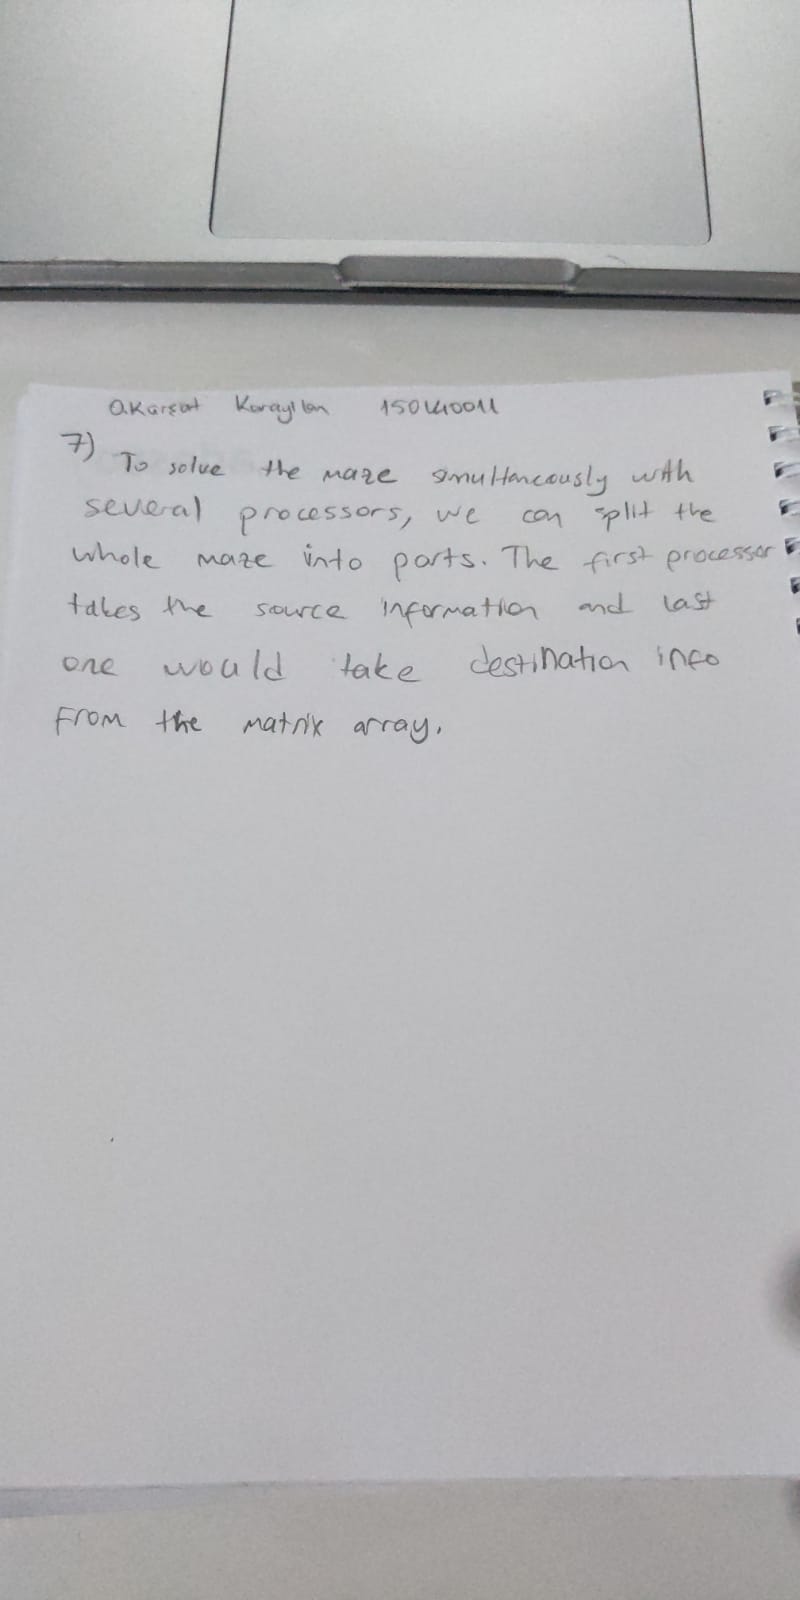 7)
To solve the maze simultaneously with
several processors, we can split the
whole maze into parts. The first processor
takes the source information and last
one would take destination info
from the matrix array.